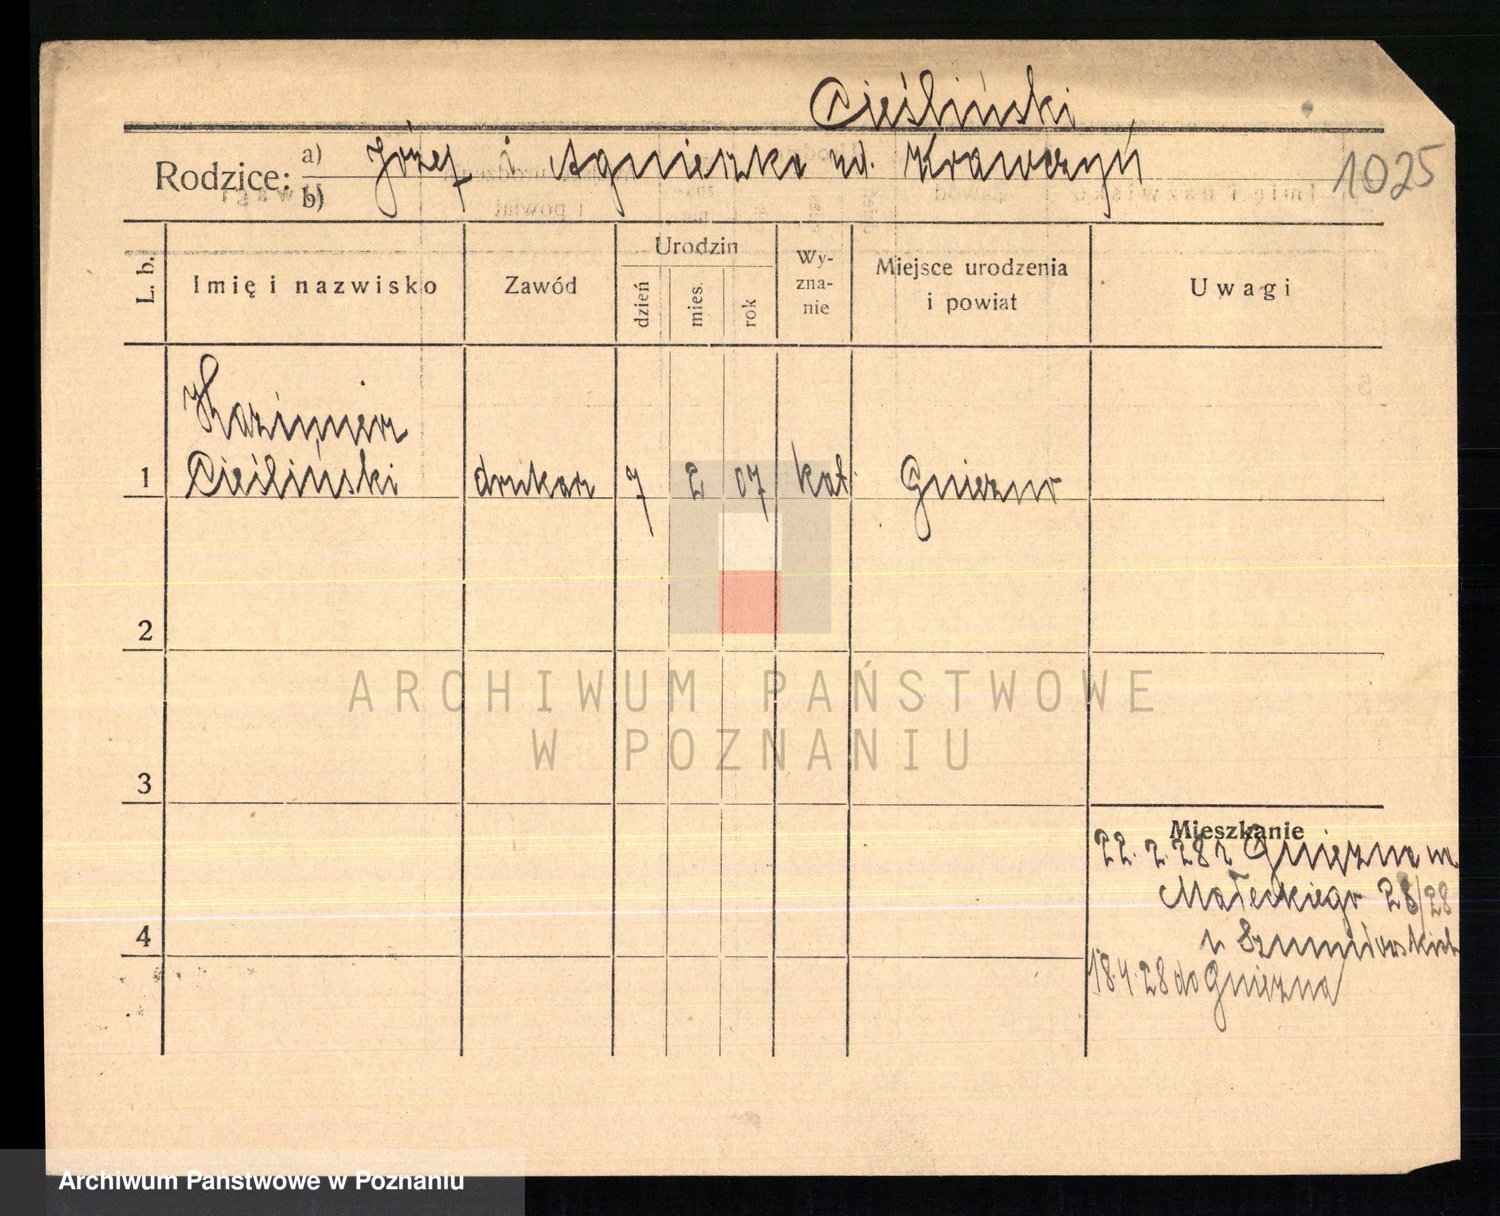 Cieśliński
Rodzice: a) b) Józef i Agnieszka ud. Krawczyń
1025
L. b.
Imię i nazwisko
Zawód
Urodzin
dzień
mies.
rok
Wy-
zna-
nie
Miejsce urodzenia
i powiat
Uwagi
Kazimierz
1 Cieśliński drukarz 7 2 07 kat. Gniezno
2
3
4
Mieszkanie
22. 2. 28 z Gniezna
Małeckiego
18.4.28 do Gniezna
ARCHIWUM PAŃSTWOWE
W POZNANIU
Archiwum Państwowe w Poznaniu